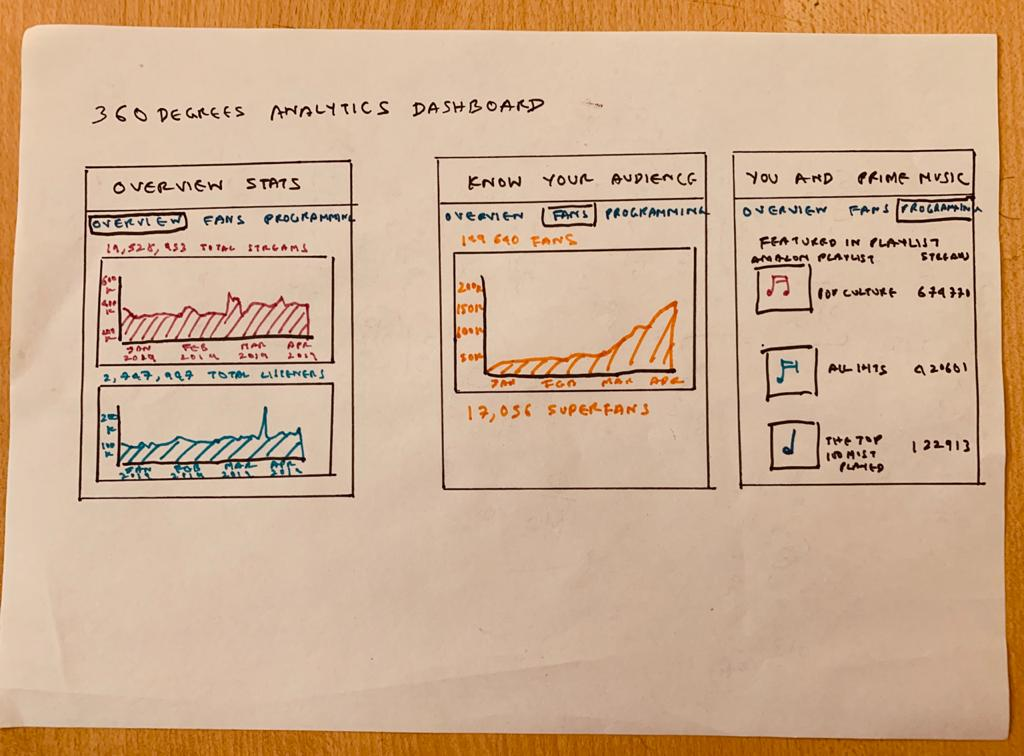 360 DEGREES ANALYTICS DASHBOARD
OVERVIEW STATS
OVERVIEW FANS PROGRAMMING
TOTAL STREAMS
400
K
JAN FEB MAR APR
2019 2019 2019 2019
TOTAL LISTENERS
200
K
100
K
JAN FEB MAR APR
2019 2019 2019 2019
KNOW YOUR AUDIENCE
OVERVIEW FANS PROGRAMMING
FANS
200K
150K
100K
50K
JAN FEB MAR APR
17,056 SUPERFANS
YOU AND PRIME MUSIC
OVERVIEW FANS PROGRAMMING
FEATURED IN PLAYLIST
AMAZON PLAYLIST STREAMS
POP CULTURE 674770
ALL HITS 920601
THE TOP
PLAYED
122913